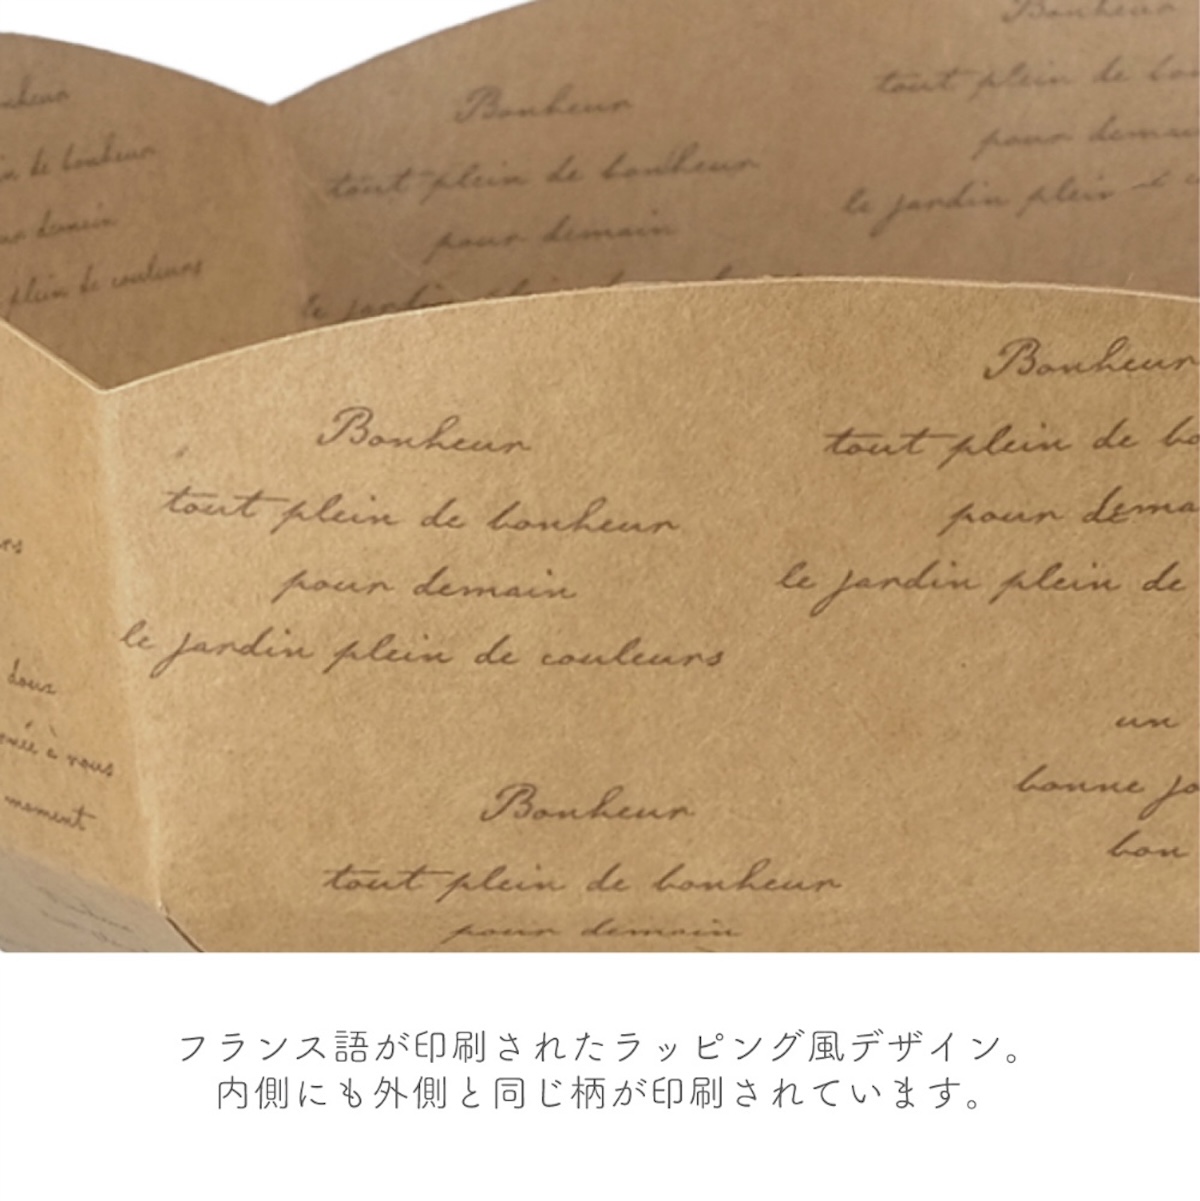 Bonheur
tout plein de bo
pour demai
le jardin plein
Bonheur
tout plein de bonheur
pour demain
le jardin plein
de bonheur
demain
plein de couleurs
Bonheur
tout plein de bonheur
pour demain
le jardin plein de couleurs
Bonheur
tout plein de bo
pour dema
le jardin plein de
doux
à vous
moment
un
bonne jo
bon
Bonheur
tout plein de bonheur
pour demain
フランス語が印刷されたラッピング風デザイン。
内側にも外側と同じ柄が印刷されています。